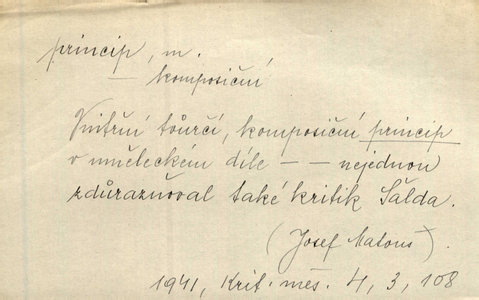 princip, m.
— komposiční
Vnitřní tvůrčí, komposiční princip
v uměleckém díle — — nejednou
zdůrazňoval také kritik Šalda.
(Josef Matouš).
1941, Krit. měs. 4, 3, 108